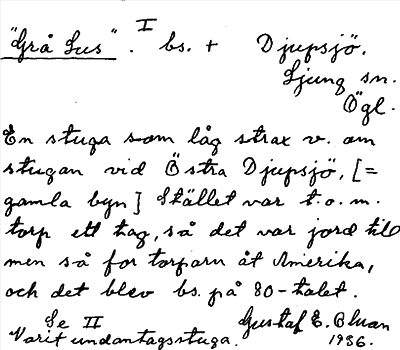 "Grå Lus". I bs. + Djupsjö.
Ljung sn.
Ögl.
En stuga som låg strax v. om
stugan vid Östra Djupsjö, [=
gamla byn] Stället var t.o.m.
torp ett tag, så det var jord till
men så for torparn åt Amerika,
och det blev bs. på 80-talet.
Se II Gustaf E. Bluan
Varit undantagsstuga. 1936.